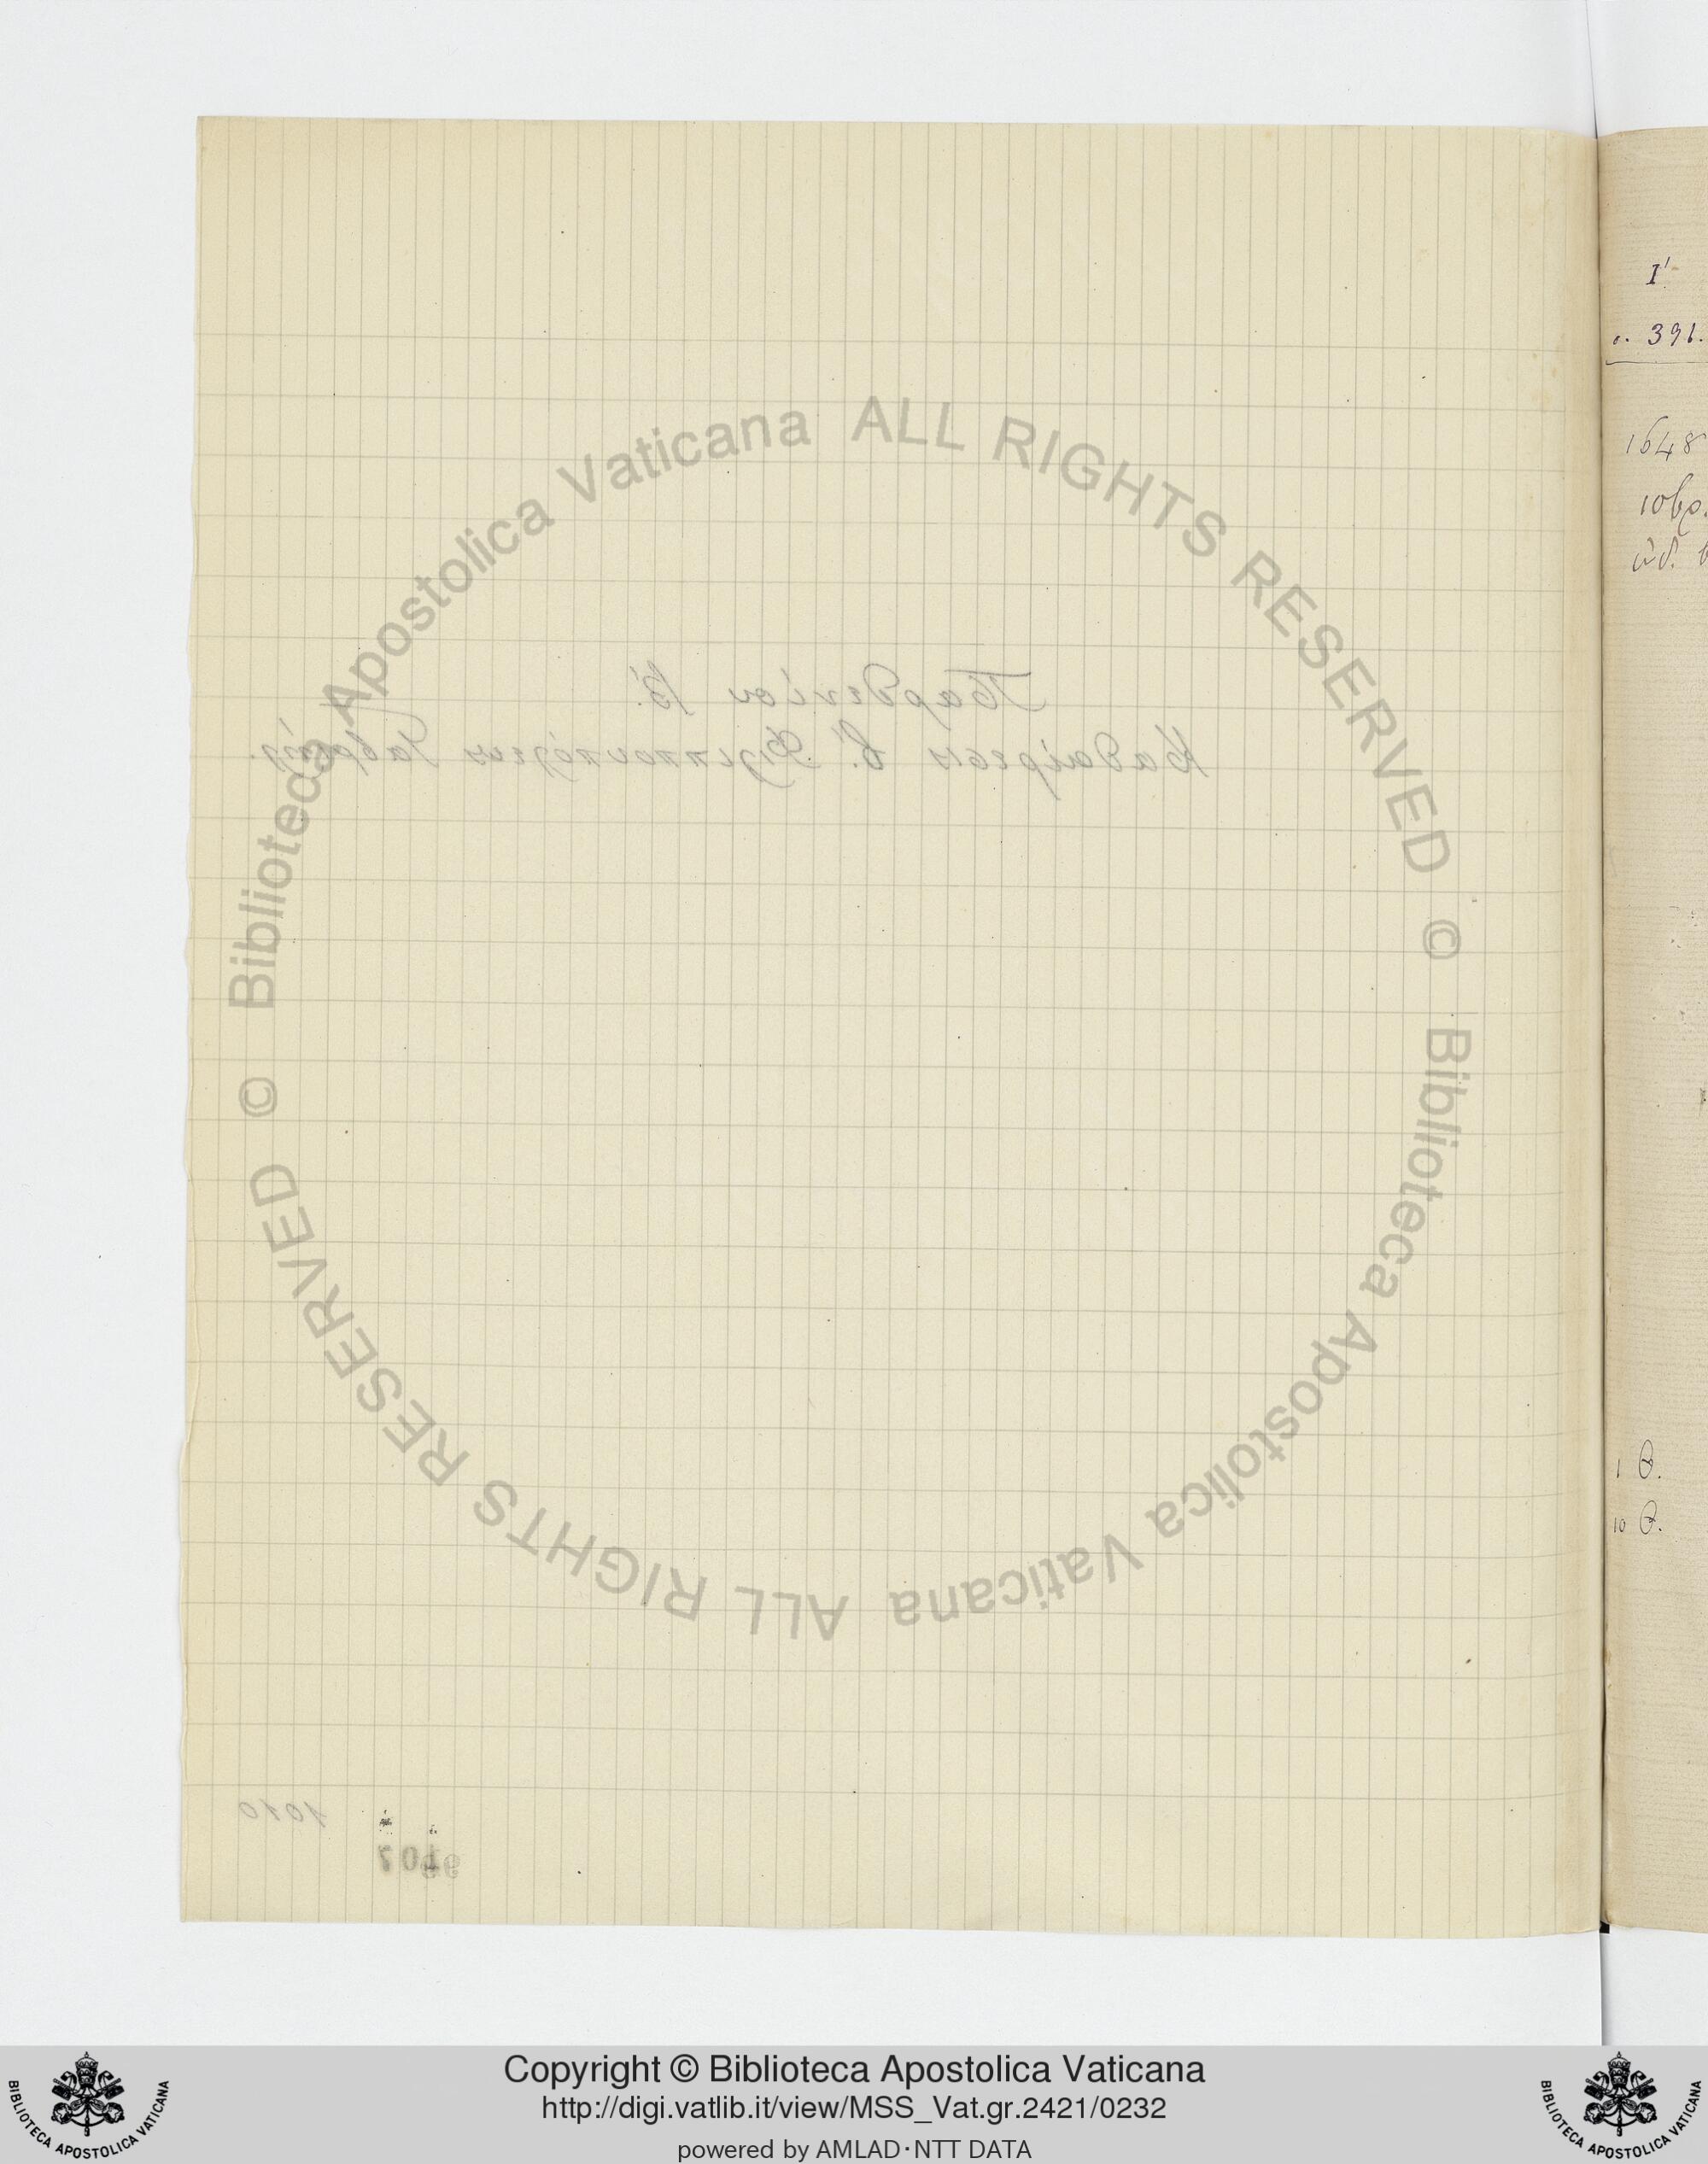 I'
391.
1648
Παρθενίου Β'.
Καθαίρεσις Φιλιππουπόλεως Γαβριήλ.
1 Θ.
10 Θ.
1010
© Biblioteca Apostolica Vaticana ALL RIGHTS RESERVED
© Biblioteca Apostolica Vaticana ALL RIGHTS RESERVED
Copyright © Biblioteca Apostolica Vaticana
http://digi.vatlib.it/view/MSS_Vat.gr.2421/0232
powered by AMLAD·NTT DATA
BIBLIOTECA APOSTOLICA VATICANA
BIBLIOTECA APOSTOLICA VATICANA